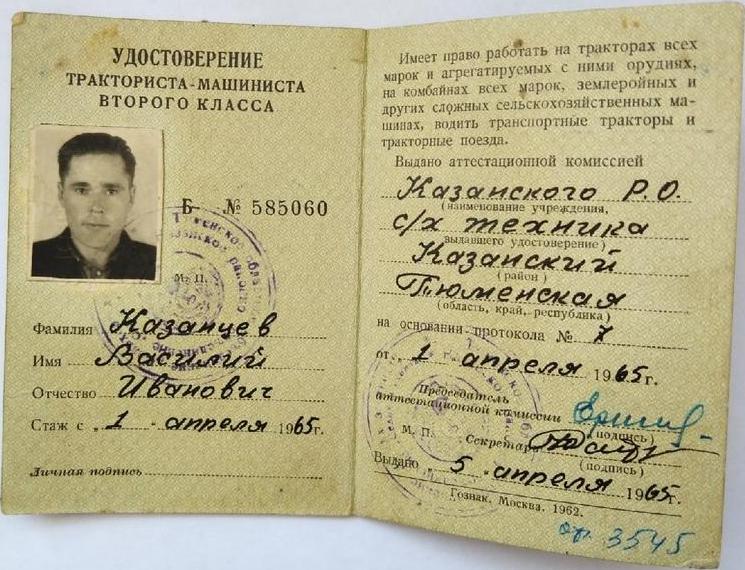 УДОСТОВЕРЕНИЕ
ТРАКТОРИСТА-МАШИНИСТА
ВТОРОГО КЛАССА
Б- № 585060
М. П.
Фамилия Казанцев
Имя Василий
Отчество Иванович
Стаж с „1 - апреля 1965г.
Личная подпись
Имеет право работать на тракторах всех
марок и агрегатируемых с ними орудиях,
на комбайнах всех марок, землеройных и
других сложных сельскохозяйственных ма-
шинах, водить транспортные тракторы и
тракторные поезда.
Выдано аттестационной комиссией
Казанского Р.О.
(наименование учреждения,
с/х техника
выдавшего удостоверение)
Казанский
(район)
Тюменская
(область, край, республика)
на основании протокола № 7
от „1 апреля 1965г.
Председатель
аттестационной комиссии
(подпись)
М. П. Секретарь
(подпись)
Выдано 5 - апреля 1965г.
Гознак. Москва. 1962.
3545